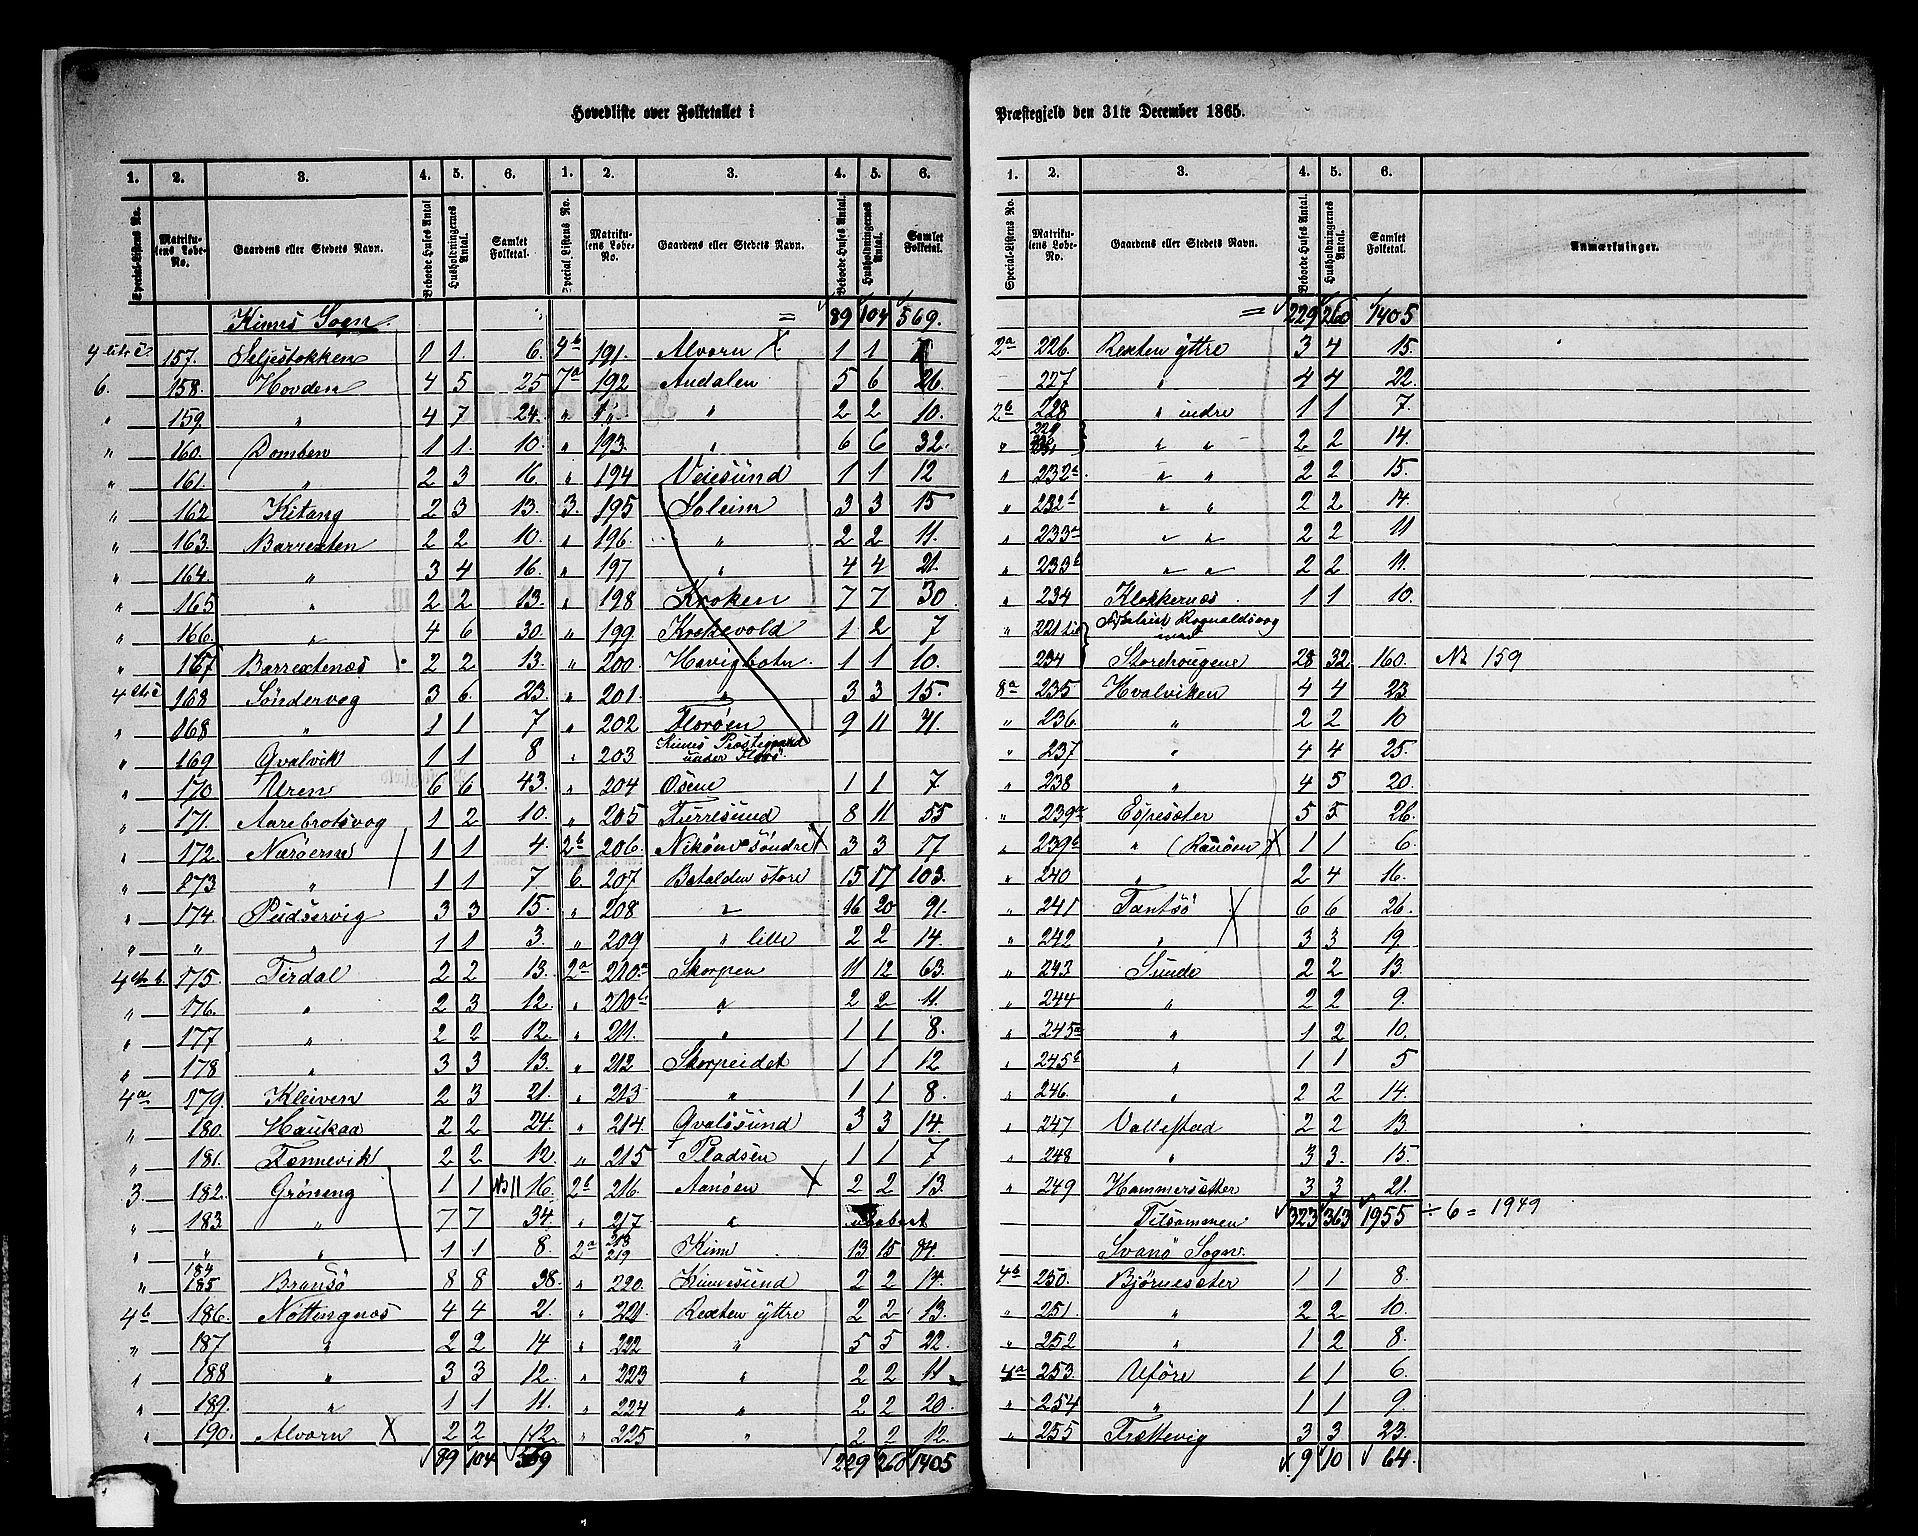 Hovedliste over Folketallet i
1. 2. 3. 4. 5. 6. 1. 2. 3. 4. 5. 6.
Special-Listens No. Matrikulens Løbe-No. Gaardens eller Stedets Navn. Beboede Huses Antal Husholdningernes Antal. Samlet Folketal. Special Listens No. Matrikulens Løbe-No. Gaardens eller Stedets Navn. Beboede Huses Antal. Husholdningernes Antal. Samlet Folketal.
Kinns Sogn = 89 104 569.
4 litr c. 157. Seljestokken 1 1. 6. 4b 191. Alvorn X. 1 1 7
6. 158. Hovden 4 5 25 7a 192 Andalen 5 6 26
" 159. " 4 7 24. " " " 2 2 10.
" 160. Domben 1 1. 10. " 193. " 6 6 32.
" 161. " 2 3 16. " 194 Veiesund 1 1 12
" 162 Kitang 2 3 13. 3. 195 Soleim 3 3 15
" 163. Barrexten 2 2 10. " 196. " 2 2 11.
" 164. " 3 4 16. " 197 " 4 4 21.
" 165 " 2 2 13. " 198 Kroken 7 7 30
" 166. " 4 6 30. " 199. Krokevold 1 2 7
" 167 Barrextenæs 2 2 13. " 200. Havigbotn. 1 1 10.
4 litr c 168 Söndervog 3 6. 23. " 201. " 3 3 15.
" 168. " 1 1 7 " 202 Florøen 9 11 71.
" 169 Qvalvik 1 1 8 " 203 Kinns Præstegaard under Florö.
" 170 Uren 6 6 43. " 204 Osene 1 1 7
" 171. Aarebrotsvog 1 2 10. " 205 Furresund 8 11 55
" 172. Nærøerne 1 1 4. 2b 206. Nikøen söndre X 3 3 17
" 173 " 1 1 7 6. 207 Batalden store 15 17 103.
" 174. Pudservig 3 3 15. " 208 " 16 20 91.
" " " 1 1 3. " 209 " litle 2 2 14.
4 litr b. 175. Tirdal 2 2 13. 2a 210a Skorpen 11 12 63
" 176. " 2 3 12. " 210b " 2 2 11.
" 177 " 2 2 12. " 211. " 1 1 8.
" 178 " 3 3 13. " 212 Skorpeidet 1 1 12
4a 179. Kleiven 2 3 21. " 213 " 1 1 8.
" 180. Haukaa 2 2 24. " 214. Qvalösund 3 3 14.
" 181. Fannevik 2 2 12. " 215 Pladsen 1 1 7
3. 182. Gröneng 1 1 16. 2b 216. Aanøen X 2 2 13.
" 183. " 7 7 34. " 217. " ubeboet
" " " 1 1 8. 2a 218 219 Kinn 13 15 84.
" 184 185 Bransö 8 8 38. " 220. Kinnesund 2 2 14.
4b 186. Nöttingnæs 4 4 21. " 221. Rexten yttre 2 2 13.
" 187 " 2 2 14 " 222 " 5 5 22.
" 188 " 3 3 12. " 223 " 2 2 11.
" 189. " 1 1 11. " 224 " 2 2 20.
" 190. Alvorn X 2 2 12. " 225 " 2 2 12.
89 104 569 229 260 1405
Præstegjeld den 31te December 1865.
1. 2. 3. 4. 5. 6.
Special-Listens No. Matrikulens Løbe-No. Gaardens eller Stedets Navn. Beboede Huses Antal. Husholdningernes Antal. Samlet Folketal. Anmærkninger.
= 229 260 1405
2a 226. Rexten yttre 3 4 15.
227 " 4 4 22.
2b 228 " indre 1 1 7.
" 229 " " 2 2 14.
" 232a " " 2 2 15.
" 232b " " 2 2 14.
" 233a " " 2 2 11
" 233b " " 2 2 11.
" 234 Klokkernæs 1 1 10.
" 221 til Rognaldsvog med
234 Storehougene 28 32 160. No 159
8a 235 Hvalviken 4 4 23
" 236. " 2 2 10
" 237 " 4 4 25.
" 238 " 4 5 20.
" 239a Espesæter 5 5 26.
" 239b " (Ranøen) X 1 1 6.
" 240 " 2 4 16.
" 241 Tantsö X 6 6 26.
" 242 " 3 3 19.
" 243 Sunde 2 2 13.
" 244 " 2 2 9.
" 245a " 1 2 10.
" 245b " 1 1 5
" 246. " 2 2 14.
" 247 Vallestad 2 2 13.
" 248 " 3 3. 15.
" 249 Hammersætter 3 3 21.
Tilsammen 323 363 1955 ÷ 6 = 1949
Svanö Sogn.
4b 250. Bjørnesæter 1 1 8.
" 251. " 2 2 10.
" 252 " 1 2 8.
4a 253. Uföre 1 1 6.
" 254 " 1 1 9.
" 255 Trættevig 3 3 23.
9 10 64.